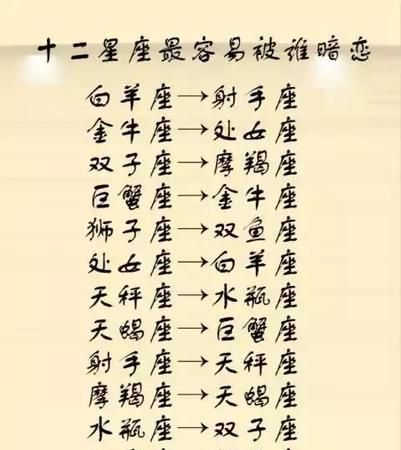 十二星座最容易被谁暗恋
白羊座→射手座
金牛座→处女座
双子座→摩羯座
巨蟹座→金牛座
狮子座→双鱼座
处女座→白羊座
天秤座→水瓶座
天蝎座→巨蟹座
射手座→天秤座
摩羯座→天蝎座
水瓶座→双子座